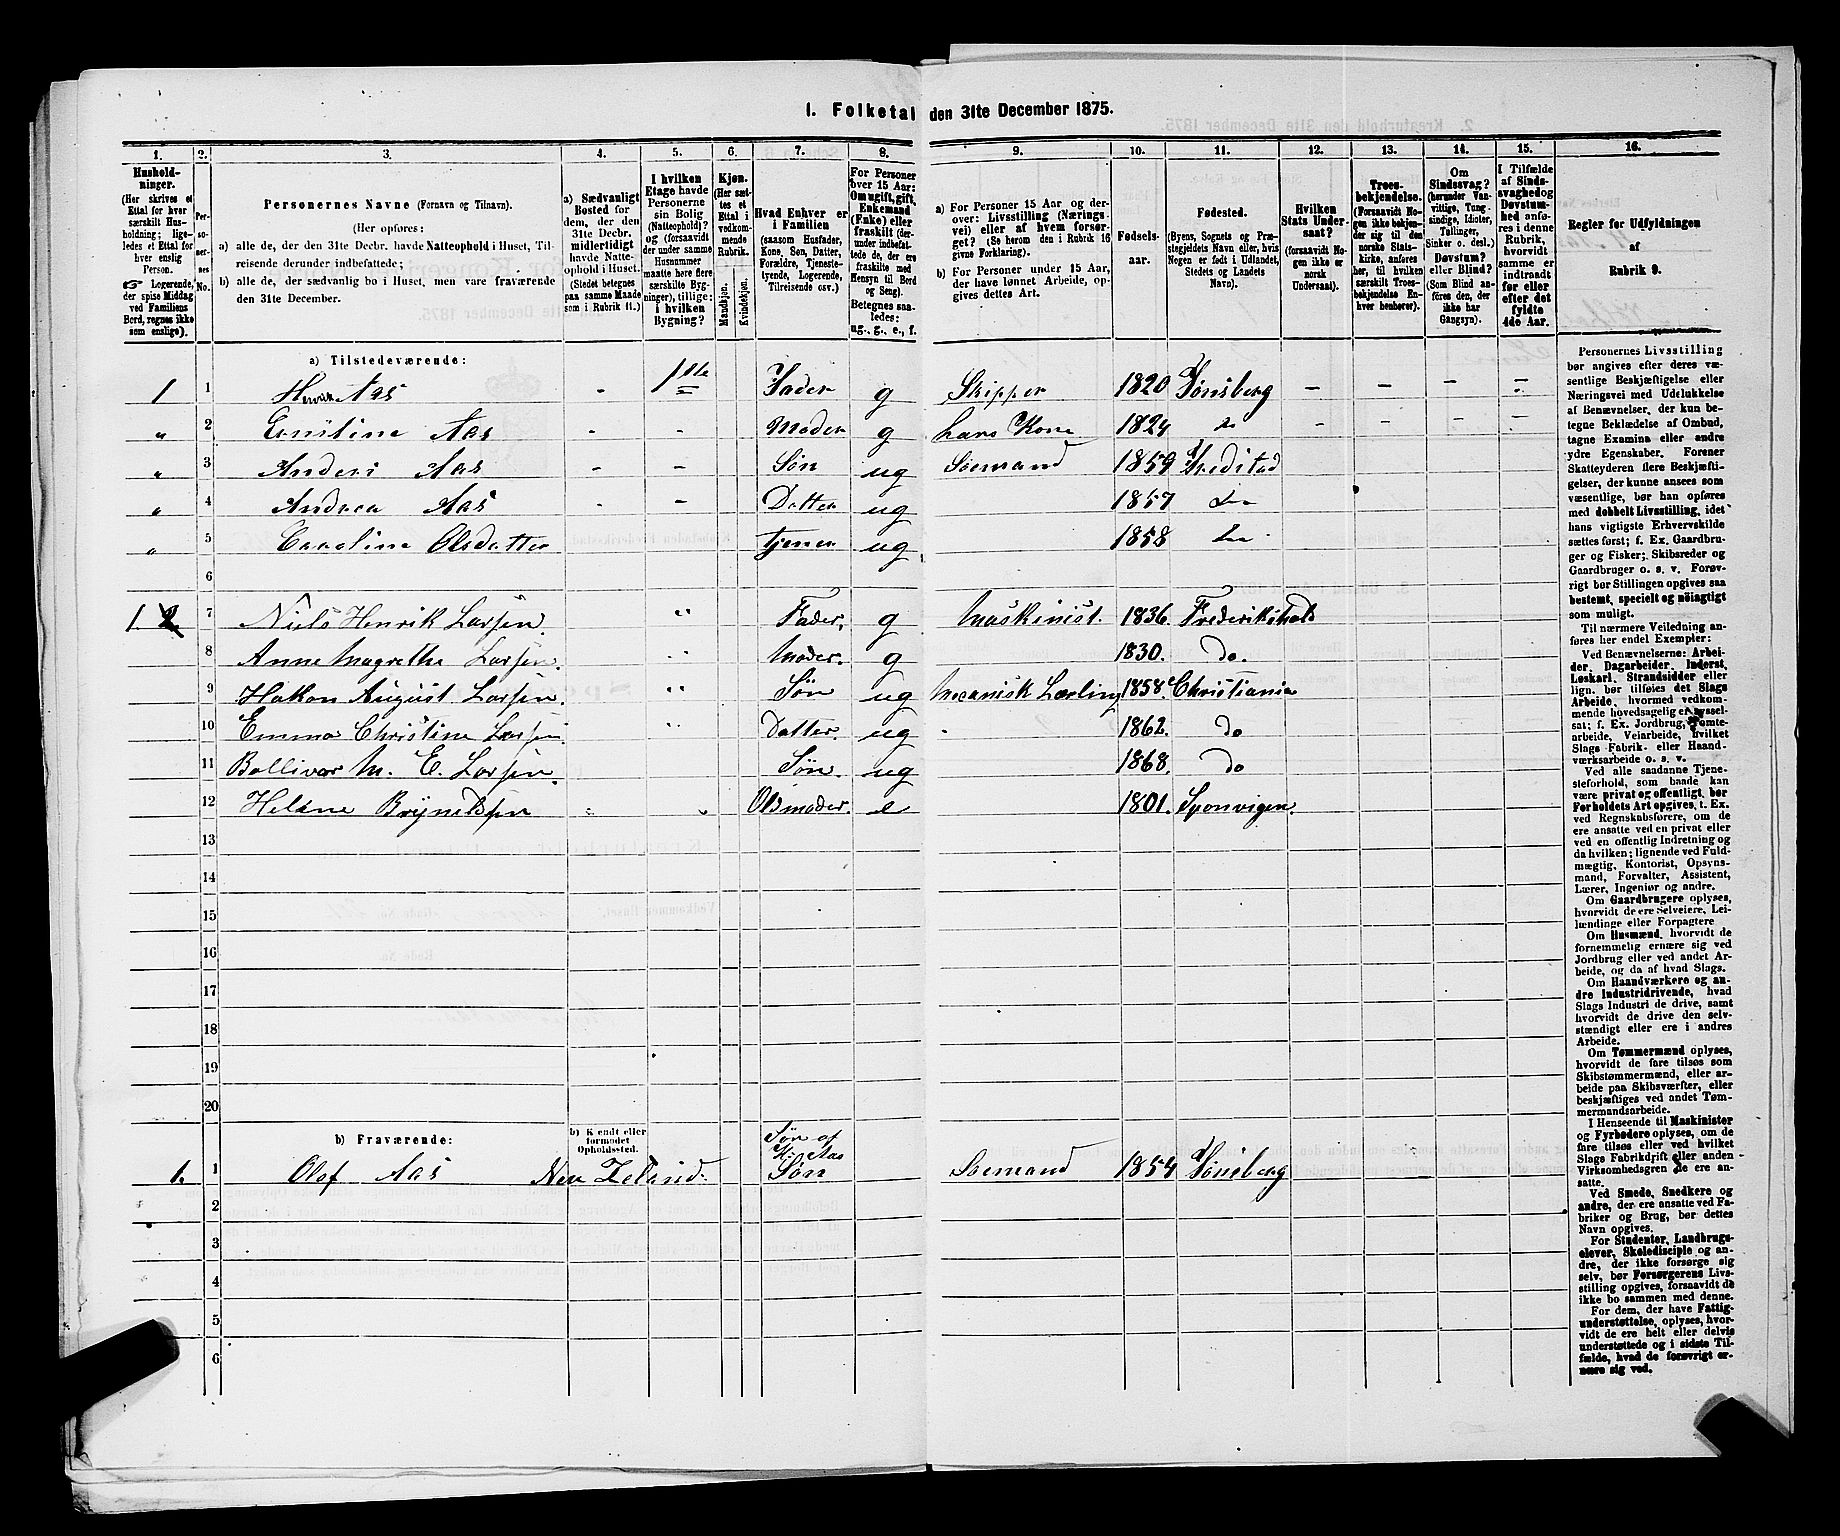 1. Folketal den 31te December 1875.
1. 2. 3. 4. 5. 6. 7. 8. 9. 10. 11. 12. 13. 14. 15. 16.
Husholdninger.
(Her skrives et
Ettal for hver
særskilt Husholdning;
ligeledes
et Ettal for
hver enslig
Person.
☞ Logerende,
der spise Middag
ved Familiens
Bord, regnes ikke
som enslige).
Personernes No.
Personernes Navne (Fornavn og Tilnavn).
(Her opføres:
a) alle de, der den 31te Decbr. havde Natteophold i Huset, Tilreisende
derunder indbefattede;
b) alle de, der sædvanlig bo i Huset, men vare fraværende
den 31te December.
a) Sædvanligt
Bosted for
dem, der den
31te Decbr.
midlertidigt
havde Natteophold
i Huset.
(Stedet betegnes
paa samme Maade
som i Rubrik 11.)
I hvilken
Etage havde
Personerne
sin Bolig
(Natteophold)?
og (forsaavidt
der under samme
Husnummer
maatte høre flere
særskilte Bygninger),
tillige:
i hvilken
Bygning?
Kjøn.
(Her sættes
et
Ettal i
vedkommende
Rubrik.
Mandkjøn.
Kvindekjøn.
Hvad Enhver er
i Familien
(saasom Husfader,
Kone, Søn, Datter,
Forældre, Tjenestetyende,
Logerende,
Tilreisende osv.)
For Personer
over 15 Aar:
Om ugift, gift,
Enkemand
(Enke) eller
fraskilt (derunder
indbefattede
de, der ere
fraskilte med
Hensyn til Bord
og Seng).
Betegnes saaledes:
ug., g., e., f.
a) For Personer 15 Aar og derover:
Livsstilling (Næringsvei)
eller af hvem forsørget?
(Se herom den i Rubrik 16
givne Forklaring).
b) For Personer under 15 Aar,
der have lønnet Arbeide, opgives
dettes Art.
Fødselsaar.
Fødested.
(Byens, Sognets og Præstegjeldets
Navn eller, hvis
Nogen er født i Udlandet,
Stedets og Landets
Navn).
Hvilken
Stats Undersaat?
(forsaavidt Nogen
ikke er
norsk
Undersaat).
Troesbekjendelse.
(Forsaavidt Nogen
ikke bekjender
sig til den
norske Statskirke,
anføres
her, til hvilken
særskilt Troesbekjendelse
Enhver
henhører).
Om
Sindssvag?
(herunder Vanvittige,
Tungsindige,
Idioter,
Tullinger,
Sinker o. desl.)
Døvstum?
eller Blind?
(Som Blind anføres
den, der
ikke har
Gangsyn).
I Tilfælde
af Sindssvaghed
og
Døvstumhed
anføres
i denne
Rubrik,
hvorvidt
samme er
indtraadt
før eller
efter det
fyldte
4de Aar.
Regler for Udfyldningen
af
Rubrik 9.
a) Tilstedeværende:
1 1 Henrik Aas - 1ste Fader g Skipper 1820 Tønsberg - - - -
" 2 Ernstine Aas - - Moder g hans Kone 1824 do - - - -
" 3 Anders Aas - - Søn ug Sømand 1859 Fredstad
" 4 Andrea Aas - - Datter ug 1857 do
" 5 Caroline Olsdatter tjener ug 1858 do
6
1 2 7 Niels Henrik Larsen. " Fader, g Maskinist. 1836. Frederikshald
8 Anne Magrethe Larsen. " Moder. g 1830. do.
9 Hakon August Larsen. " Søn ug Mecanisk Lærling 1858. Christiania
10 Emma Christine Larsen. " Datter. ug 1862. do
11 Bollivar M. E. Larsen. Søn. ug 1868. do
12 Helene Brynildsen " " Oldmoder. e 1801. Sponvigen.
13
14
15
16
17
18
19
20
b) Fraværende:
b) Kjendt eller
formodet
Opholdssted.
Søn af
H. Aas
1. 1 Olof Aas New Zeland. Søn Soemand 1854 Tønsberg
2
3
4
5
6
Personernes Livsstilling
bør angives efter deres væsentlige
Beskjæftigelse eller
Næringsvei med Udelukkelse
af Benævnelser, der kun betegne
Beklædelse af Ombud,
tagne Examina eller andre
ydre Egenskaber. Forener
Skatteyderen flere Beskjæftigelser,
der kunne ansees som
væsentlige, bør han opføres
med dobbelt Livsstilling, idet
hans vigtigste Erhvervskilde
sættes først; f. Ex. Gaardbruger
og Fisker; Skibsreder og
Gaardbruger o. s. v. Forøvrigt
bør Stillingen opgives saa
bestemt, specielt og nøiagtigt
som muligt.
Til nærmere Veiledning anføres
her endel Exempler:
Ved Benævnelserne: Arbeider,
Dagarbeider, Inderst,
Løskarl, Strandsidder eller
lign. bør tilføies det Slags
Arbeide, hvormed vedkommende
hovedsagelig er sysselsat;
f. Ex. Jordbrug, Tomtearbeide,
Veiarbeide, hvilket
Slags Fabrik- eller Haandværksarbeide
o. s. v.
Ved alle saadanne Tjenesteforhold,
som baade kan
være privat og offentligt, bør
Forholdets Art opgives, t. Ex.
ved Regnskabsførere, om de
ere ansatte ved en privat eller
ved en offentlig Indretning og
da hvilken; lignende ved Fuldmægtig,
Kontorist, Opsynsmand,
Forvalter, Assistent,
Lærer, Ingeniør og andre.
Om Gaardbrugere oplyses,
hvorvidt de ere Selveiere, Leilændinge
eller Forpagtere
Om Husmænd, hvorvidt de
fornemmelig ernære sig ved
Jordbrug eller ved andet Arbeide,
og da af hvad Slags.
Om Haandværkere og andre
Industridrivende, hvad
Slags Industri de drive, samt
hvorvidt de drive den selvstændigt
eller ere i andres
Arbeide.
Om Tømmermænd oplyses,
hvorvidt de fare tilsøs som
Skibstømmermænd, eller arbeide
paa Skibsværfter, eller
beskjæftiges ved andet Tømmermandsarbeide.
I Henseende til Maskinister
og Fyrbødere oplyses, om de
fare tilsøs eller ved hvilket
Slags Fabrikdrift eller anden
Virksomhedsgren de ere ansatte.
Ved Smede, Snedkere og
andre, der ere ansatte ved Fabriker
og Brug, bør dettes
Navn opgives.
For Studenter, Landbrugselever,
Skoledisciple og andre,
der ikke forsørge sig
selv, bør Forsørgerens Livsstilling
opgives, forsaavidt de
ikke bo sammen med denne.
For dem, der have Fattigunderstøttelse,
oplyses, hvorvidt
de ere helt eller delvis
understøttede og i sidste Tilfælde,
hvad de forøvrigt ernære
sig ved.